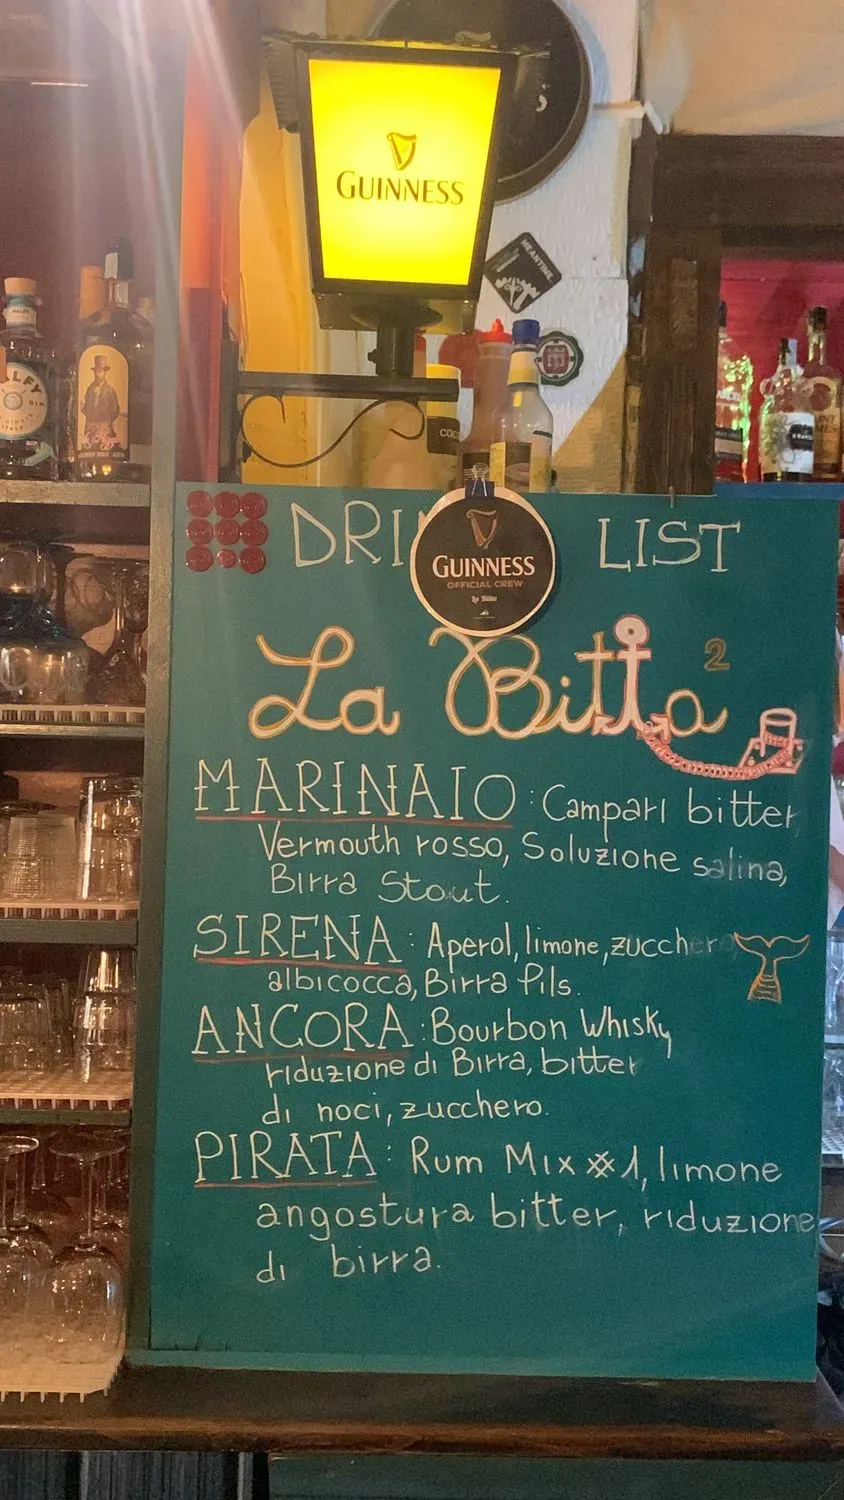 GUINNESS
MEANTIME
DRI LIST
GUINNESS
OFFICIAL CREW
La Bitta
La Bitta 2
MARINAIO: Campari bitter
Vermouth rosso, Soluzione salina,
Birra Stout.
SIRENA: Aperol, limone, zucchero
albicocca, Birra Pils.
ANCORA: Bourbon Whisky
riduzione di Birra, bitter
di noci, zucchero.
PIRATA: Rum Mix #1, limone
angostura bitter, riduzione
di birra.